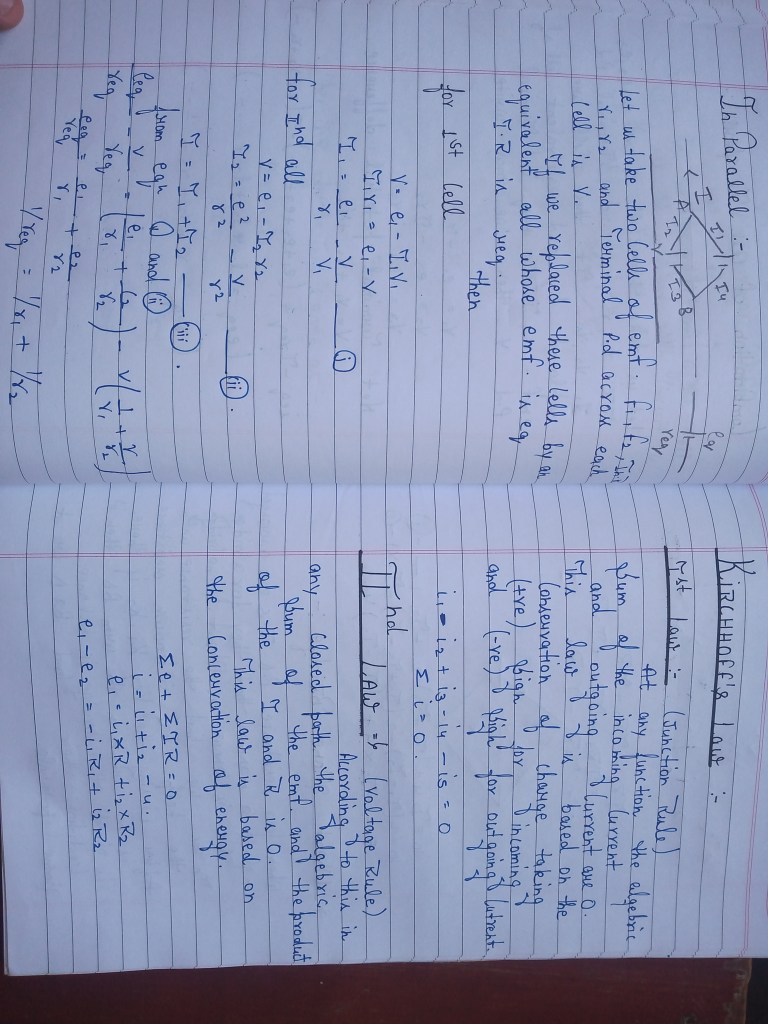 In Parallel :-
I I1 I4
A I2 I3 B
V
eq
req
Let us take two Cells of emf. E1, E2, Ini
r1, r2 and Terminal P.d across each
Cell is V.
If we replaced these Cells by an
equivalent all whose emf. is eq
I.R is req.
then
for Ist Cell
V = e1 - I1V1
I1r1 = e1 - V
I1 = e1/r1 - V/V1 — (i)
for IInd all
V = e1 - I2r2
I2 = e2/r2 - V/r2 — (ii).
I = I1 + I2 — (iii).
from eqn (i) and (ii)
eeq/req - V/req = (e1/r1 + e2/r2) - V(1/r1 + r/r2)
eeq/req = e1/r1 + e2/r2
1/req = 1/r1 + 1/r2
KIRCHHOFF's Law :-
Ist Law :- (Junction Rule)
At any function the algebric
Sum of the incoming Current
and outgoing Current are 0.
This law is based on the
Conservation of change taking
(+ve) Sign for incoming
and (-ve) Sign for outgoing Current.
i1 = i2 + i3 - i4 - i5 = 0
Σ i = 0.
IInd LAW => (Voltage Rule)
According to this in
any Closed path the algebric
Sum of the emf. and the product
of the I and R is 0.
This law is based on
the Concervation of energy.
Σe + ΣIR = 0
i = i1 + i2 - 4.
e1 = i1xR + i2xR2
e1 - e2 = -i1R1 + i2R2